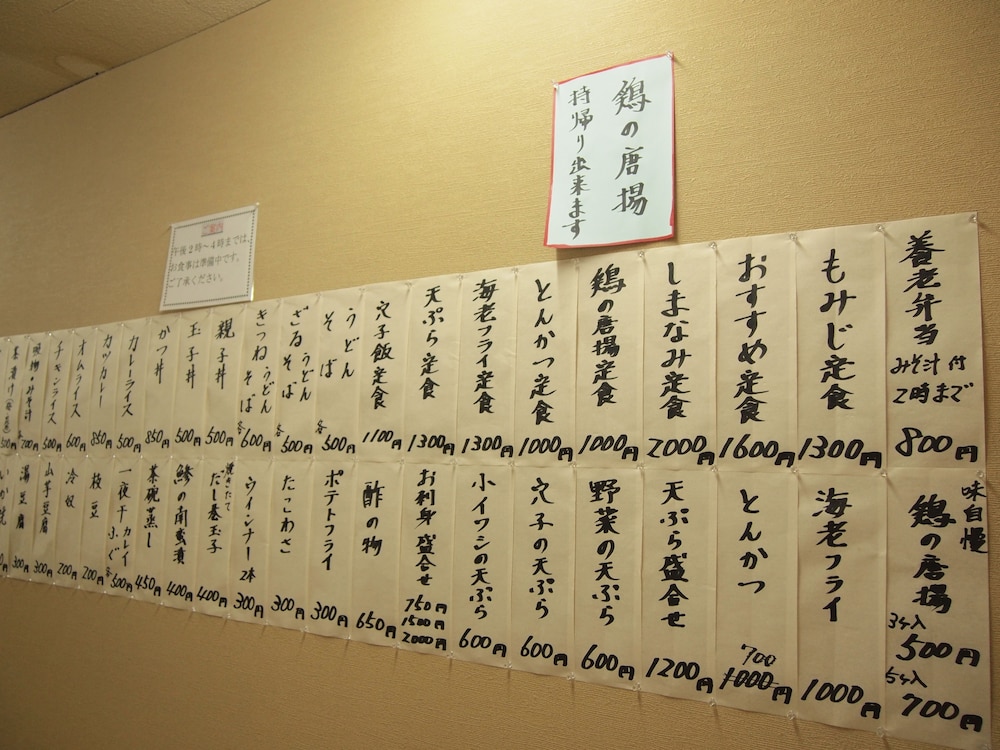 鶏の唐揚
持帰り出来ます
ご案内
午後2時〜4時までは、
お食事は準備中です。
ご了承ください。
養老弁当
みそ汁付
2時まで
800円
もみじ定食
1300円
おすすめ定食
1600円
しまなみ定食
2000円
鶏の唐揚定食
1000円
とんかつ定食
1000円
海老フライ定食
1300円
天ぷら定食
1300円
穴子飯定食
1100円
うどん
そば
各500円
ざるうどん
そば
各500円
きつねうどん
そば
各600円
親子丼
500円
玉子丼
500円
かつ丼
850円
カレーライス
500円
カツカレー
850円
オムライス
600円
チキンライス
500円
吸物・みそ汁
各200円
茶漬け
500円
味自慢
鶏の唐揚
3ケ入
500円
5ケ入
700円
海老フライ
1000円
とんかつ
700
1000円
天ぷら盛合せ
1200円
野菜の天ぷら
600円
穴子の天ぷら
600円
小イワシの天ぷら
600円
お刺身盛合せ
750円
1500円
2000円
酢の物
650円
ポテトフライ
300円
たこわさ
300円
ウインナー2本
300円
焼きたて
だし巻玉子
400円
鯵の南蛮漬
400円
茶碗蒸し
450円
一夜干カレイ
ふぐ
各500円
枝豆
200円
冷奴
200円
山芋豆腐
300円
湯豆腐
300円